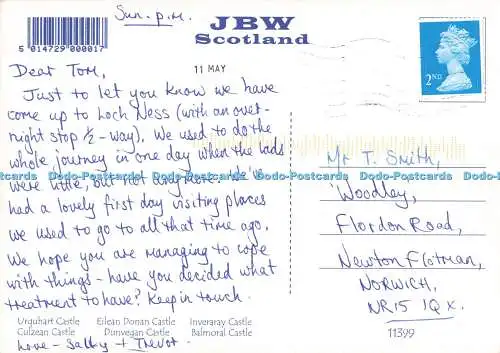 Sun. p.m.
JBW
Scotland
5 014729 000017
11 MAY
2ND
Dear Tom,
Just to let you know we have
come up to Loch Ness (with an over-
night stop ½-way). We used to do the
whole journey in one day when the lads
were little, but not any more. We've
had a lovely first day visiting places
we used to go to all that time ago.
We hope you are managing to cope
with things - have you decided what
treatment to have? Keep in touch.
Love - Sally + Trevor.
Mr T. Smith,
Woodley,
Flordon Road,
Newton Flotman,
NORWICH,
NR15 1QX.
Urquhart Castle Eilean Donan Castle Inveraray Castle
Culzean Castle Dunvegan Castle Balmoral Castle
11399
Dodo-Postcards Dodo-Postcards Dodo-Postcards Dodo-Postcards Dodo-Postcards